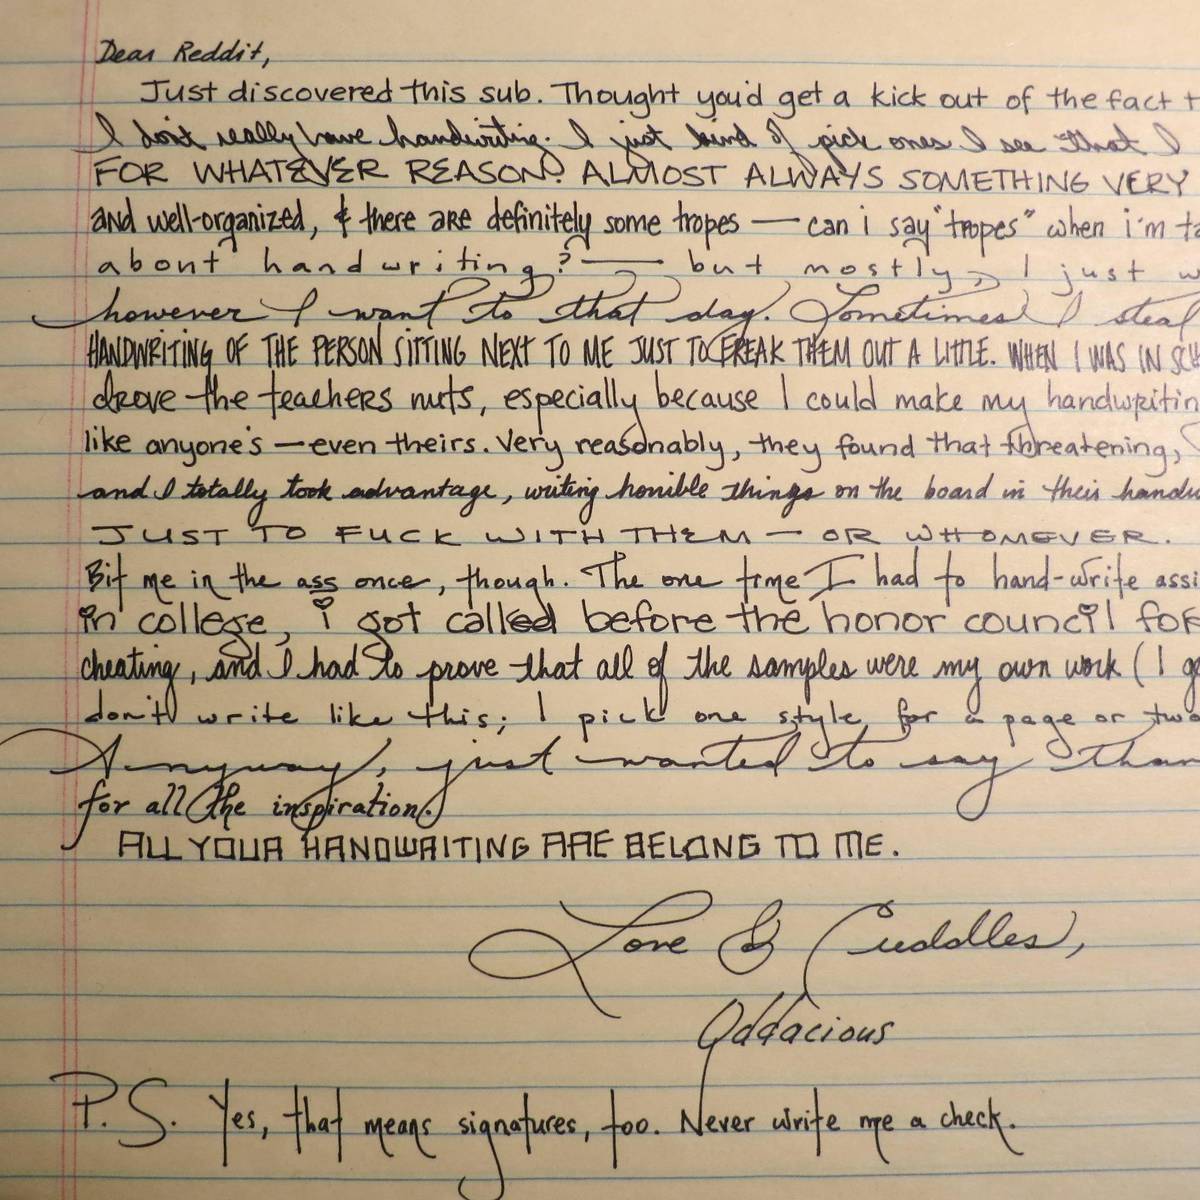 Dear Reddit,
Just discovered this sub. Thought you'd get a kick out of the fact t
I don't really have handwriting. I just kind of pick ones I see that I
FOR WHATEVER REASON? ALMOST ALWAYS SOMETHING VERY
and well-organized, & there are definitely some tropes — can i say "tropes" when i'm ta
about handwriting? — but mostly, I just w
however I want to that day. Sometimes I steal
HANDWRITING OF THE PERSON SITTING NEXT TO ME JUST TO FREAK THEM OUT A LITTLE. WHEN I WAS IN SCH
drove the teachers nuts, especially because I could make my handwritin
like anyone's — even theirs. Very reasonably, they found that threatening,
and I totally took advantage, writing horrible things on the board in their handw
JUST TO FUCK WITH THEM — OR WHOMEVER.
Bit me in the ass once, though. The one time I had to hand-write assi
in college, i got called before the honor council for
cheating, and I had to prove that all of the samples were my own work (I ge
don't write like this; I pick one style for a page or two
Anyway, just wanted to say than
for all the inspiration.
ALL YOUR HANDWRITING ARE BELONG TO ME.
Love & Cuddles,
Oddacious
P.S. Yes, that means signatures, too. Never write me a check.